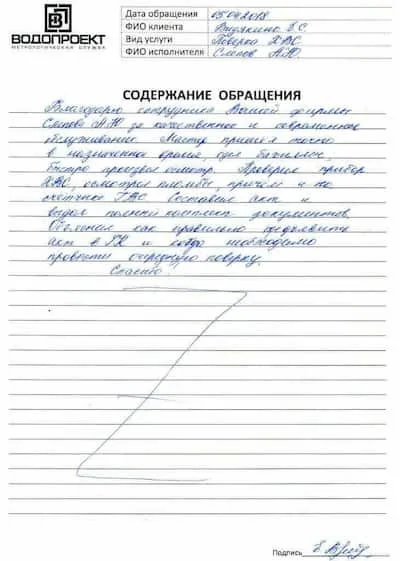 ВОДОПРОЕКТ
МЕТРОЛОГИЧЕСКАЯ СЛУЖБА
Дата обращения 05.04.2018
ФИО клиента Е.С.
Вид услуги Поверка ХВС
ФИО исполнителя Слепов А.Ю.
СОДЕРЖАНИЕ ОБРАЩЕНИЯ
Благодарю сотрудника Вашей фирмы
Слепова А.Ю за качественное и современное
обслуживание. Мастер пришел точно
в назначенное время, одел бахиллы,
быстро произвел осмотр. Проверил прибор
ХВС, осмотрел пломбы, причем и на
счетчике ГВС. Составил акт и
выдал полный комплект документов.
Объяснил как правильно предъявить
акт в УК и когда необходимо
провести очередную поверку.
Спасибо!
Подпись